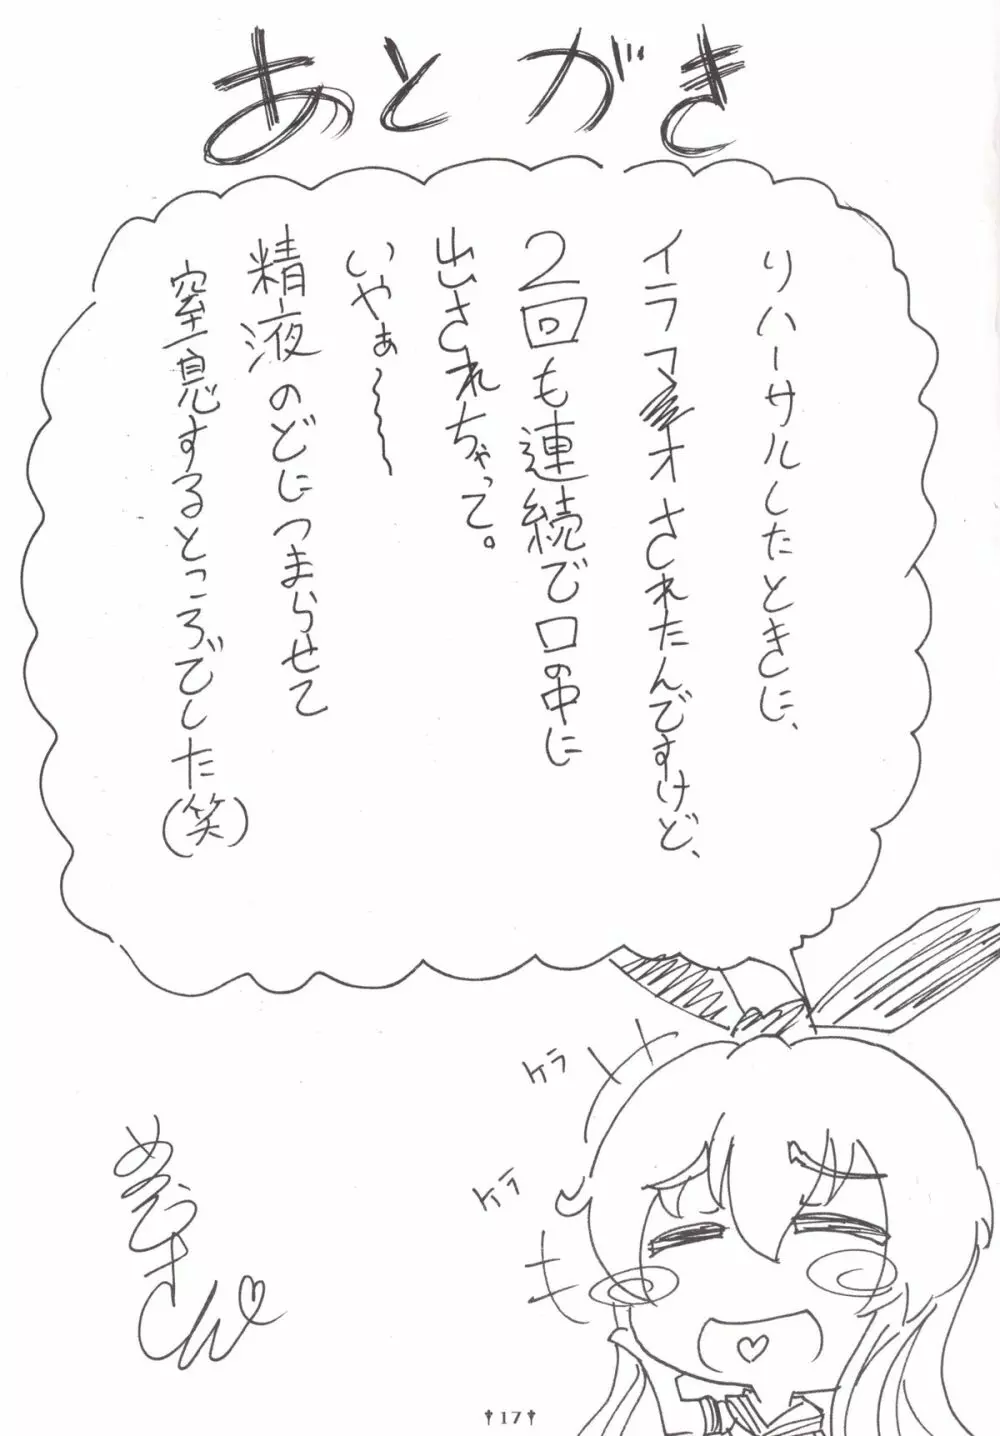 あとがき
リハーサルしたときに、
イラマオされたんですけど、
2回も連続で口の中に
出されちゃって。
いやぁ～～
精液のどにつまらせて
窒息するところでした(笑)
ケラ
ケラ
17